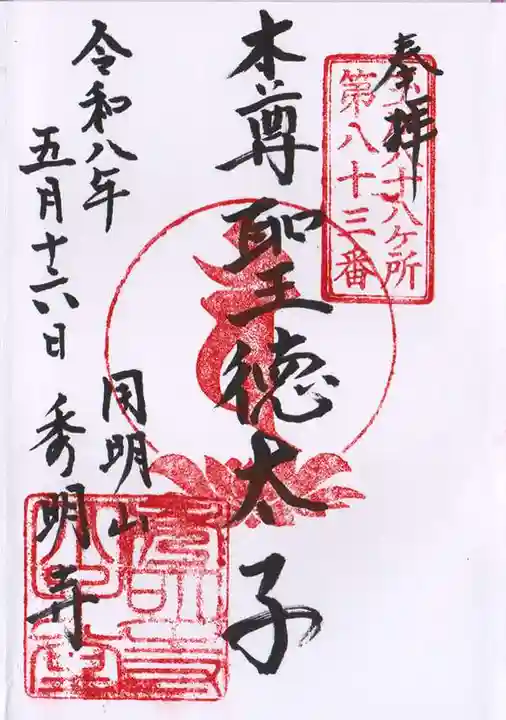 奉拝
八十八ヶ所
第八十三番
本尊聖徳太子
令和八年
五月十六日
用明山
秀明寺